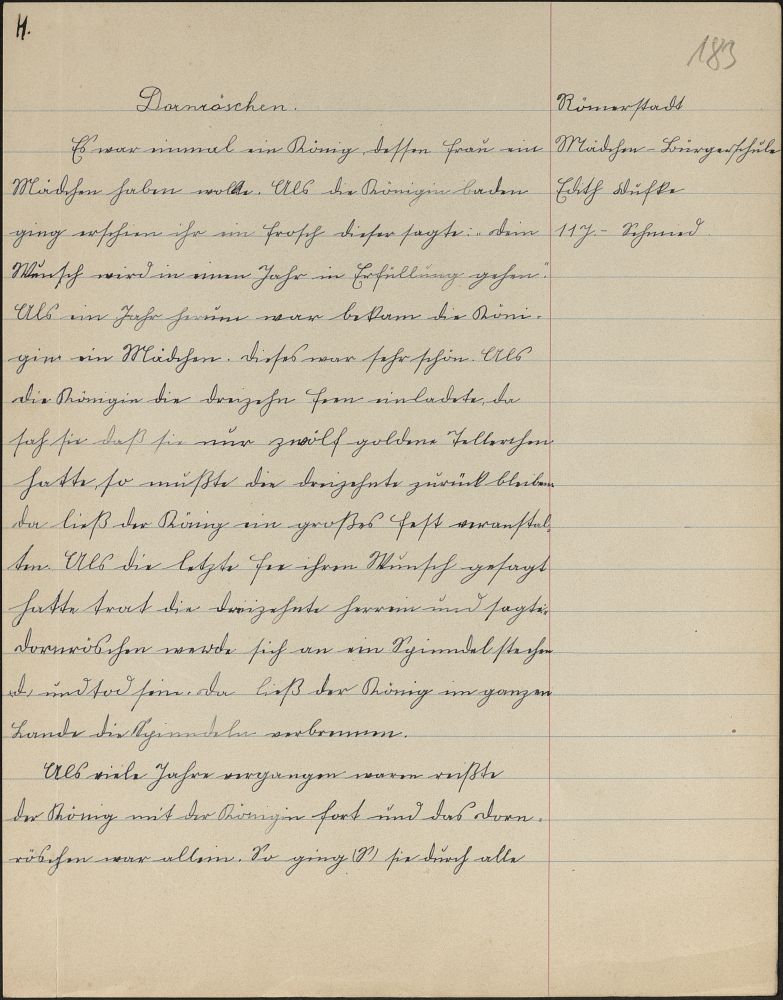 H.
183
Dornröschen.
Es war einmal ein König, dessen Frau ein
Mädchen haben wollte. Als die Königin baden
ging erschien ihr ein Frosch dieser sagte: „Dein
Wunsch wird in einen Jahr in Erfüllung gehen".
Als ein Jahr herum war bekam die Köni-
gin ein Mädchen. Dieses war sehr schön. Als
die Königin die dreizehn Feen einladete, da
sah sie daß sie nur zwölf goldene Tellerchen
hatte, so mußte die dreizehnte zurück bleiben
da ließ der König ein großes Fest veranstal-
ten. Als die letzte Fee ihren Wunsch gesagt
hatte trat die dreizehnte herrein und sagte:
Dornröschen werde sich an ein Spinndel stechen
und tod sein. Da ließ der König im ganzen
Lande die Spinndeln verbrennen.
Als viele Jahre vergangen waren reißte
der König mit der Königin fort und das Dorn-
röschen war allein. So ging (S) sie durch alle
Römerstadt
Mädchen-Bürgerschule
Edith Dufke
11 J. - Schmied